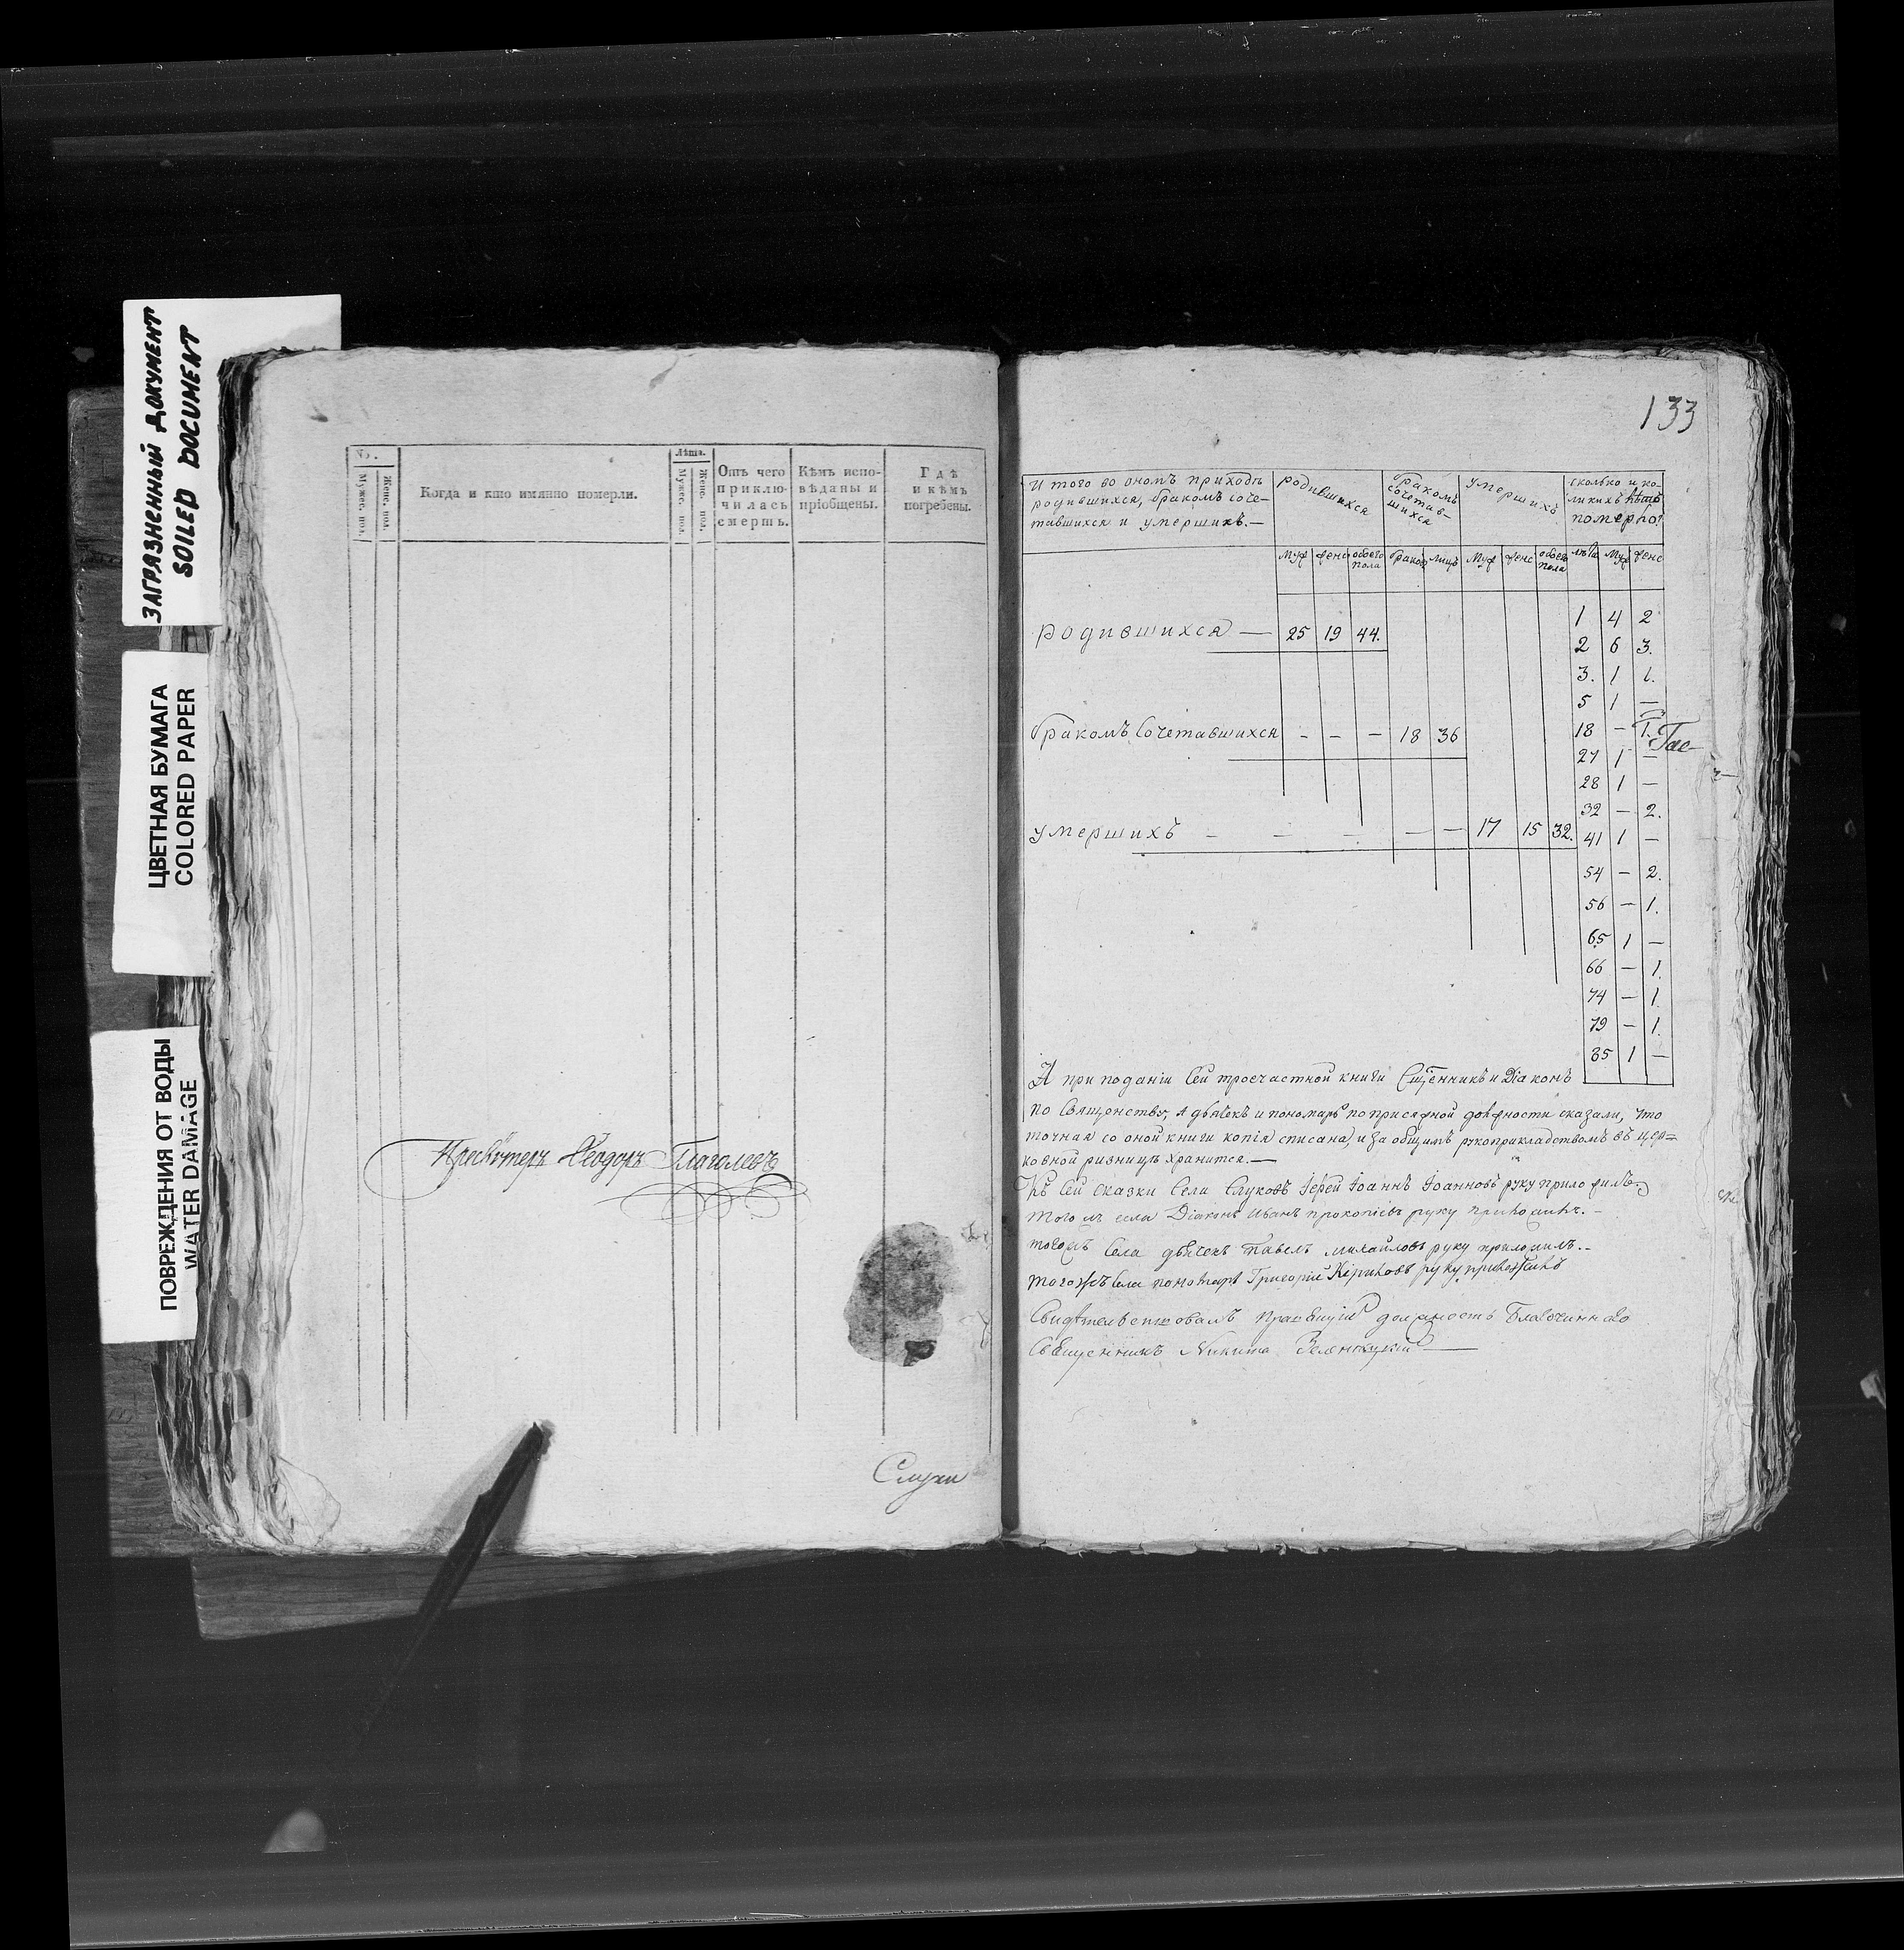 ЗАГРЯЗНЕННЫЙ ДОКУМЕНТ
SOILED DOCUMENT
ЦВЕТНАЯ БУМАГА
COLORED PAPER
ПОВРЕЖДЕНИЯ ОТ ВОДЫ
WATER DAMAGE
№.
Мужес. пол.
Женс. пол.
Когда и кто имянно померли.
Лѣта.
Мужес. пол.
Женс. пол.
Отъ чего
приклю-
чилась
смерть.
Кѣмъ испо-
вѣданы и
пріобщены.
Гдѣ
и кѣмъ
погребены.
Пресвѵтеръ Ѳеодоръ Глаголевъ
Слуки
133
И того во ономъ приходѣ
родившихся, бракомъ соче-
тавшихся и умершихъ.—
родившихся
бракомъ
сочетав-
шихся
умершихъ
сколько и ко-
ликихъ лѣтъ
померло.
муж женс обоего пола браков лицъ муж женс обоего пола лѣта муж женс
родившихся — 25 19 44.
бракомъ сочетавшихся - - - 18 36
умершихъ - - - - - 17 15 32.
1 4 2
2 6 3.
3. 1 1.
5 1 —
18 — 1.
27 1 —
28 1 —
32 — 2.
41 1 —
54 — 2.
56 — 1.
65 1 —
66 — 1.
74 — 1.
79 — 1.
85 1 —
А при поданіи сей троечастной книги Сщенникъ и Діаконъ
по Священству, а дьячекъ и пономарь по присяжной должности сказали, что
точная со оной книги копія списана, и за общимъ рукоприкладствомъ въ цер=
ковной ризницѣ хранится.—
Къ сей сказки Села Слуковъ Іерей Іоаннъ Іоанновъ руку приложилъ.
Того жъ села Діаконъ Иванъ прокопіевъ руку приложилъ.-
тогожъ Села дьячекъ Павелъ михайловъ руку приложилъ..
тогожъ Села пономарь Григорій Кириловъ руку приложилъ
Свидѣтельствовалъ правящій должность Благочиннаго
Священникъ Никита